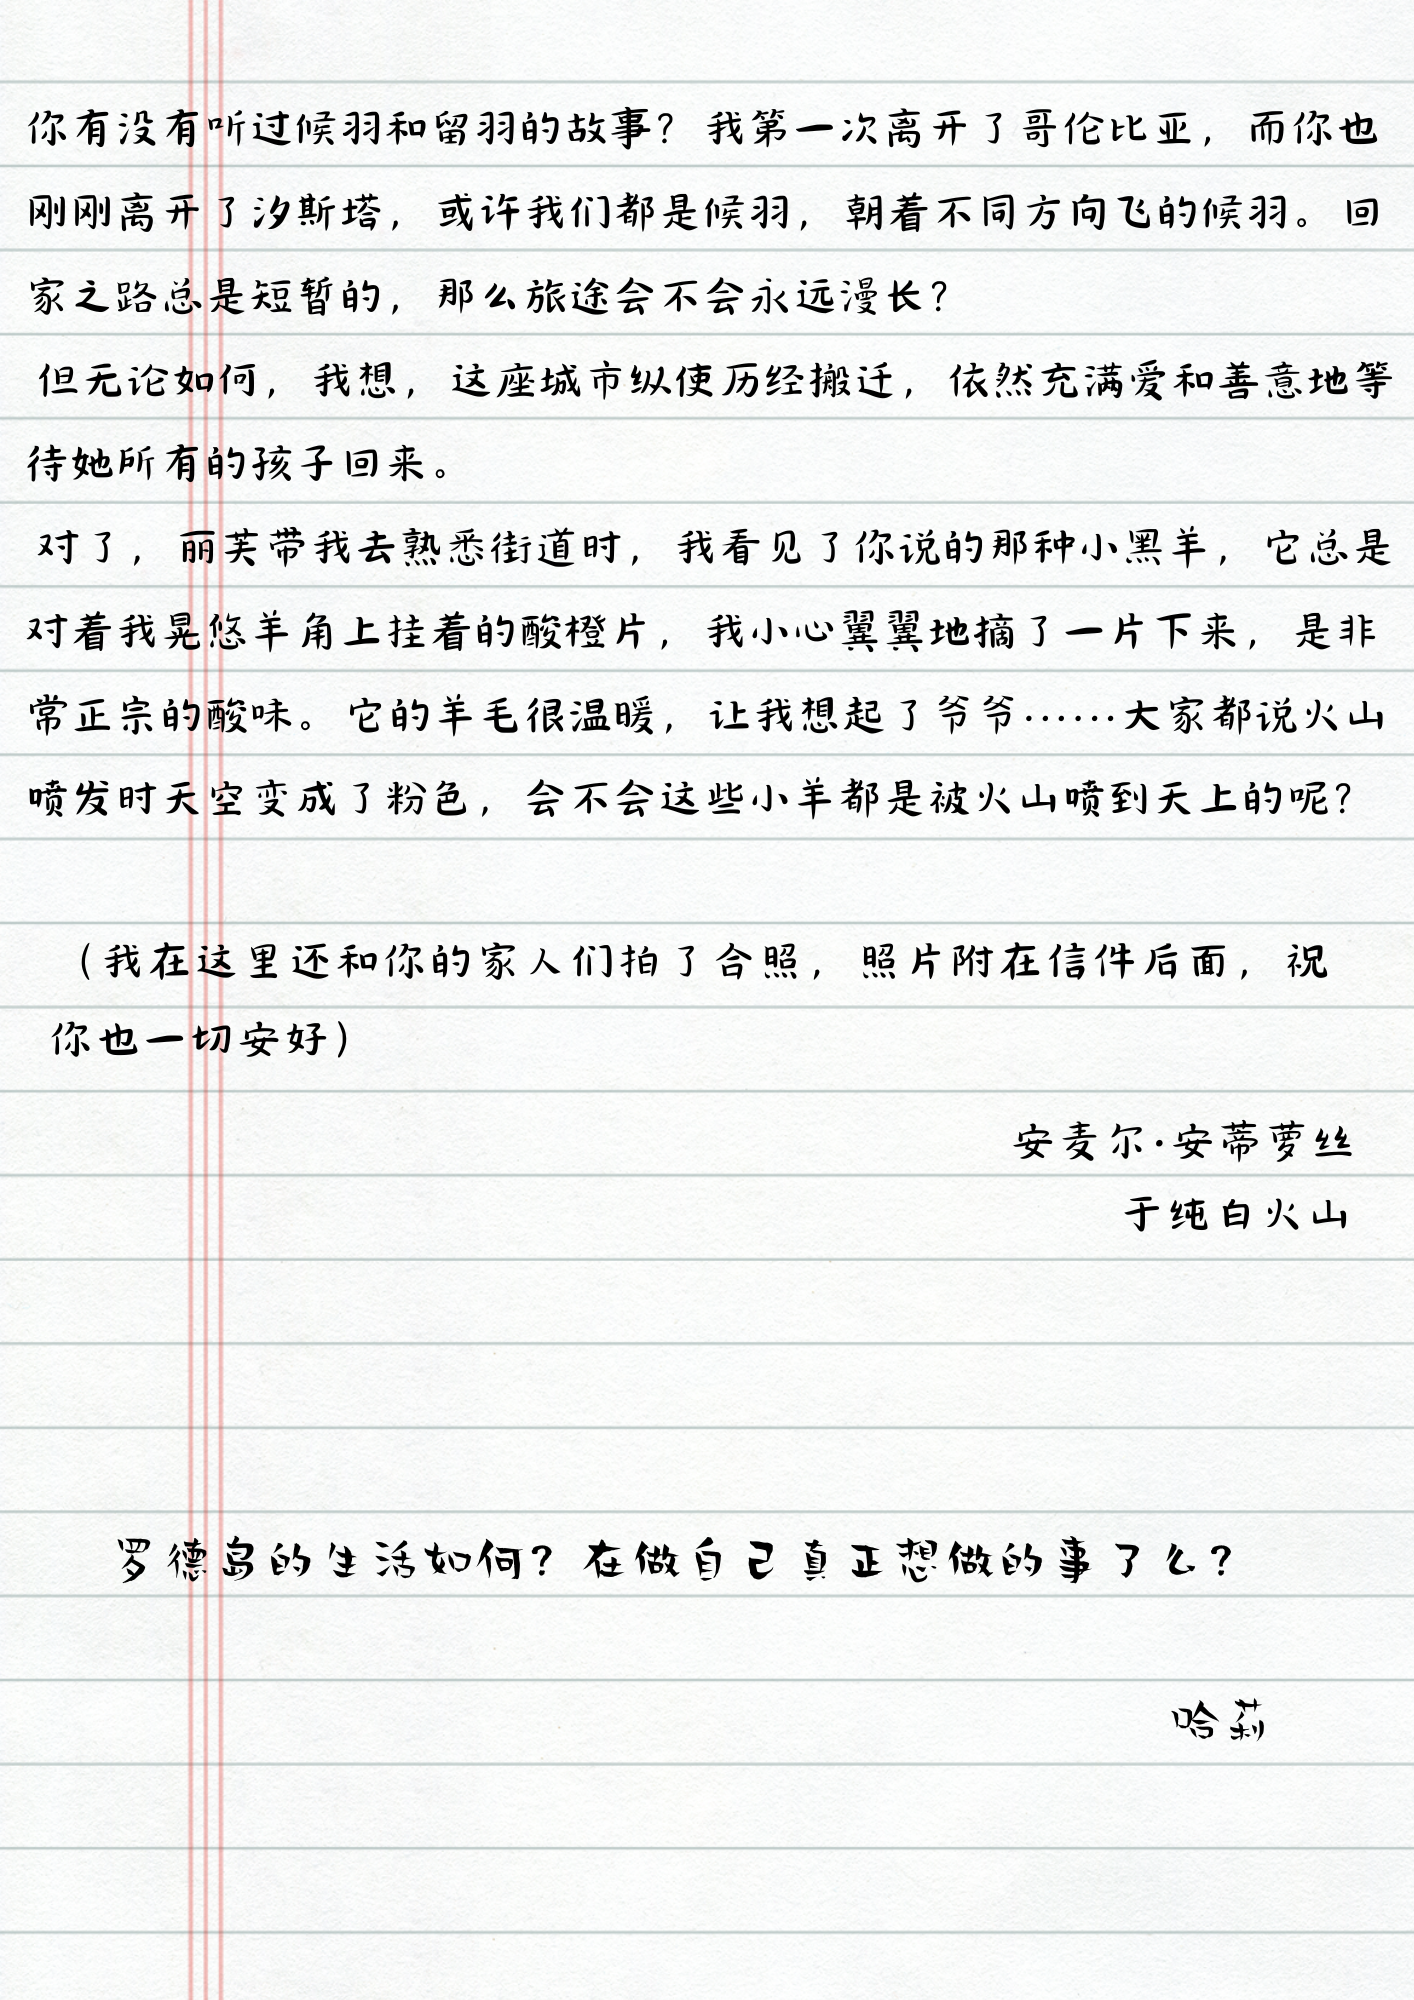 你有没有听过候羽和留羽的故事？我第一次离开了哥伦比亚，而你也
刚刚离开了汐斯塔，或许我们都是候羽，朝着不同方向飞的候羽。回
家之路总是短暂的，那么旅途会不会永远漫长？
但无论如何，我想，这座城市纵使历经搬迁，依然充满爱和善意地等
待她所有的孩子回来。
对了，丽芙带我去熟悉街道时，我看见了你说的那种小黑羊，它总是
对着我晃悠羊角上挂着的酸橙片，我小心翼翼地摘了一片下来，是非
常正宗的酸味。它的羊毛很温暖，让我想起了爷爷……大家都说火山
喷发时天空变成了粉色，会不会这些小羊都是被火山喷到天上的呢？
（我在这里还和你的家人们拍了合照，照片附在信件后面，祝
你也一切安好）
安麦尔·安蒂萝丝
于纯白火山
罗德岛的生活如何？在做自己真正想做的事了么？
哈莉